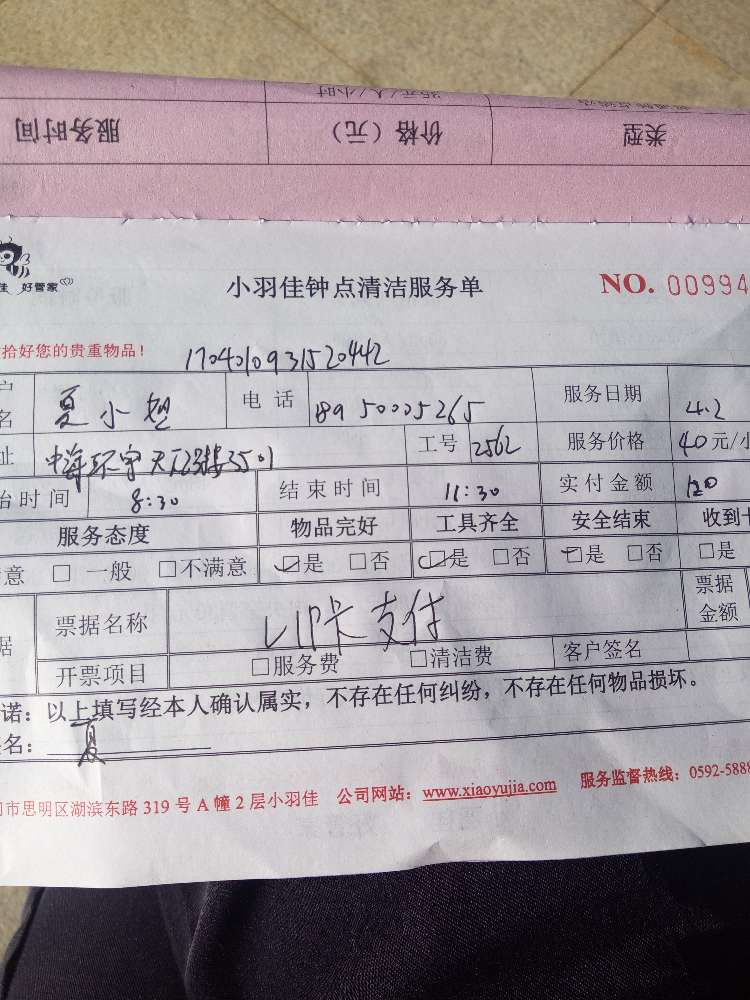 35元/人/小时
类型 价格（元） 服务时间
佳 好管家
小羽佳钟点清洁服务单 NO. 00994
拾好您的贵重物品！ 1704010931520442
户名 夏小姐 电话 18950005265 服务日期 4.2
址 中海环宇天下23楼3501 工号 2562 服务价格 40元/小
始时间 8:30 结束时间 11:30 实付金额 120
服务态度 物品完好 工具齐全 安全结束 收到卡
意 □ 一般 □不满意 ☑是 □否 ☑是 □否 ☑是 □否 □是
据 票据名称 VIP卡支付 票据金额
开票项目 □服务费 □清洁费 客户签名
诺：以上填写经本人确认属实，不存在任何纠纷，不存在任何物品损坏。
名： 夏
门市思明区湖滨东路 319 号 A 幢 2 层小羽佳 公司网站：www.xiaoyujia.com 服务监督热线：0592-5888